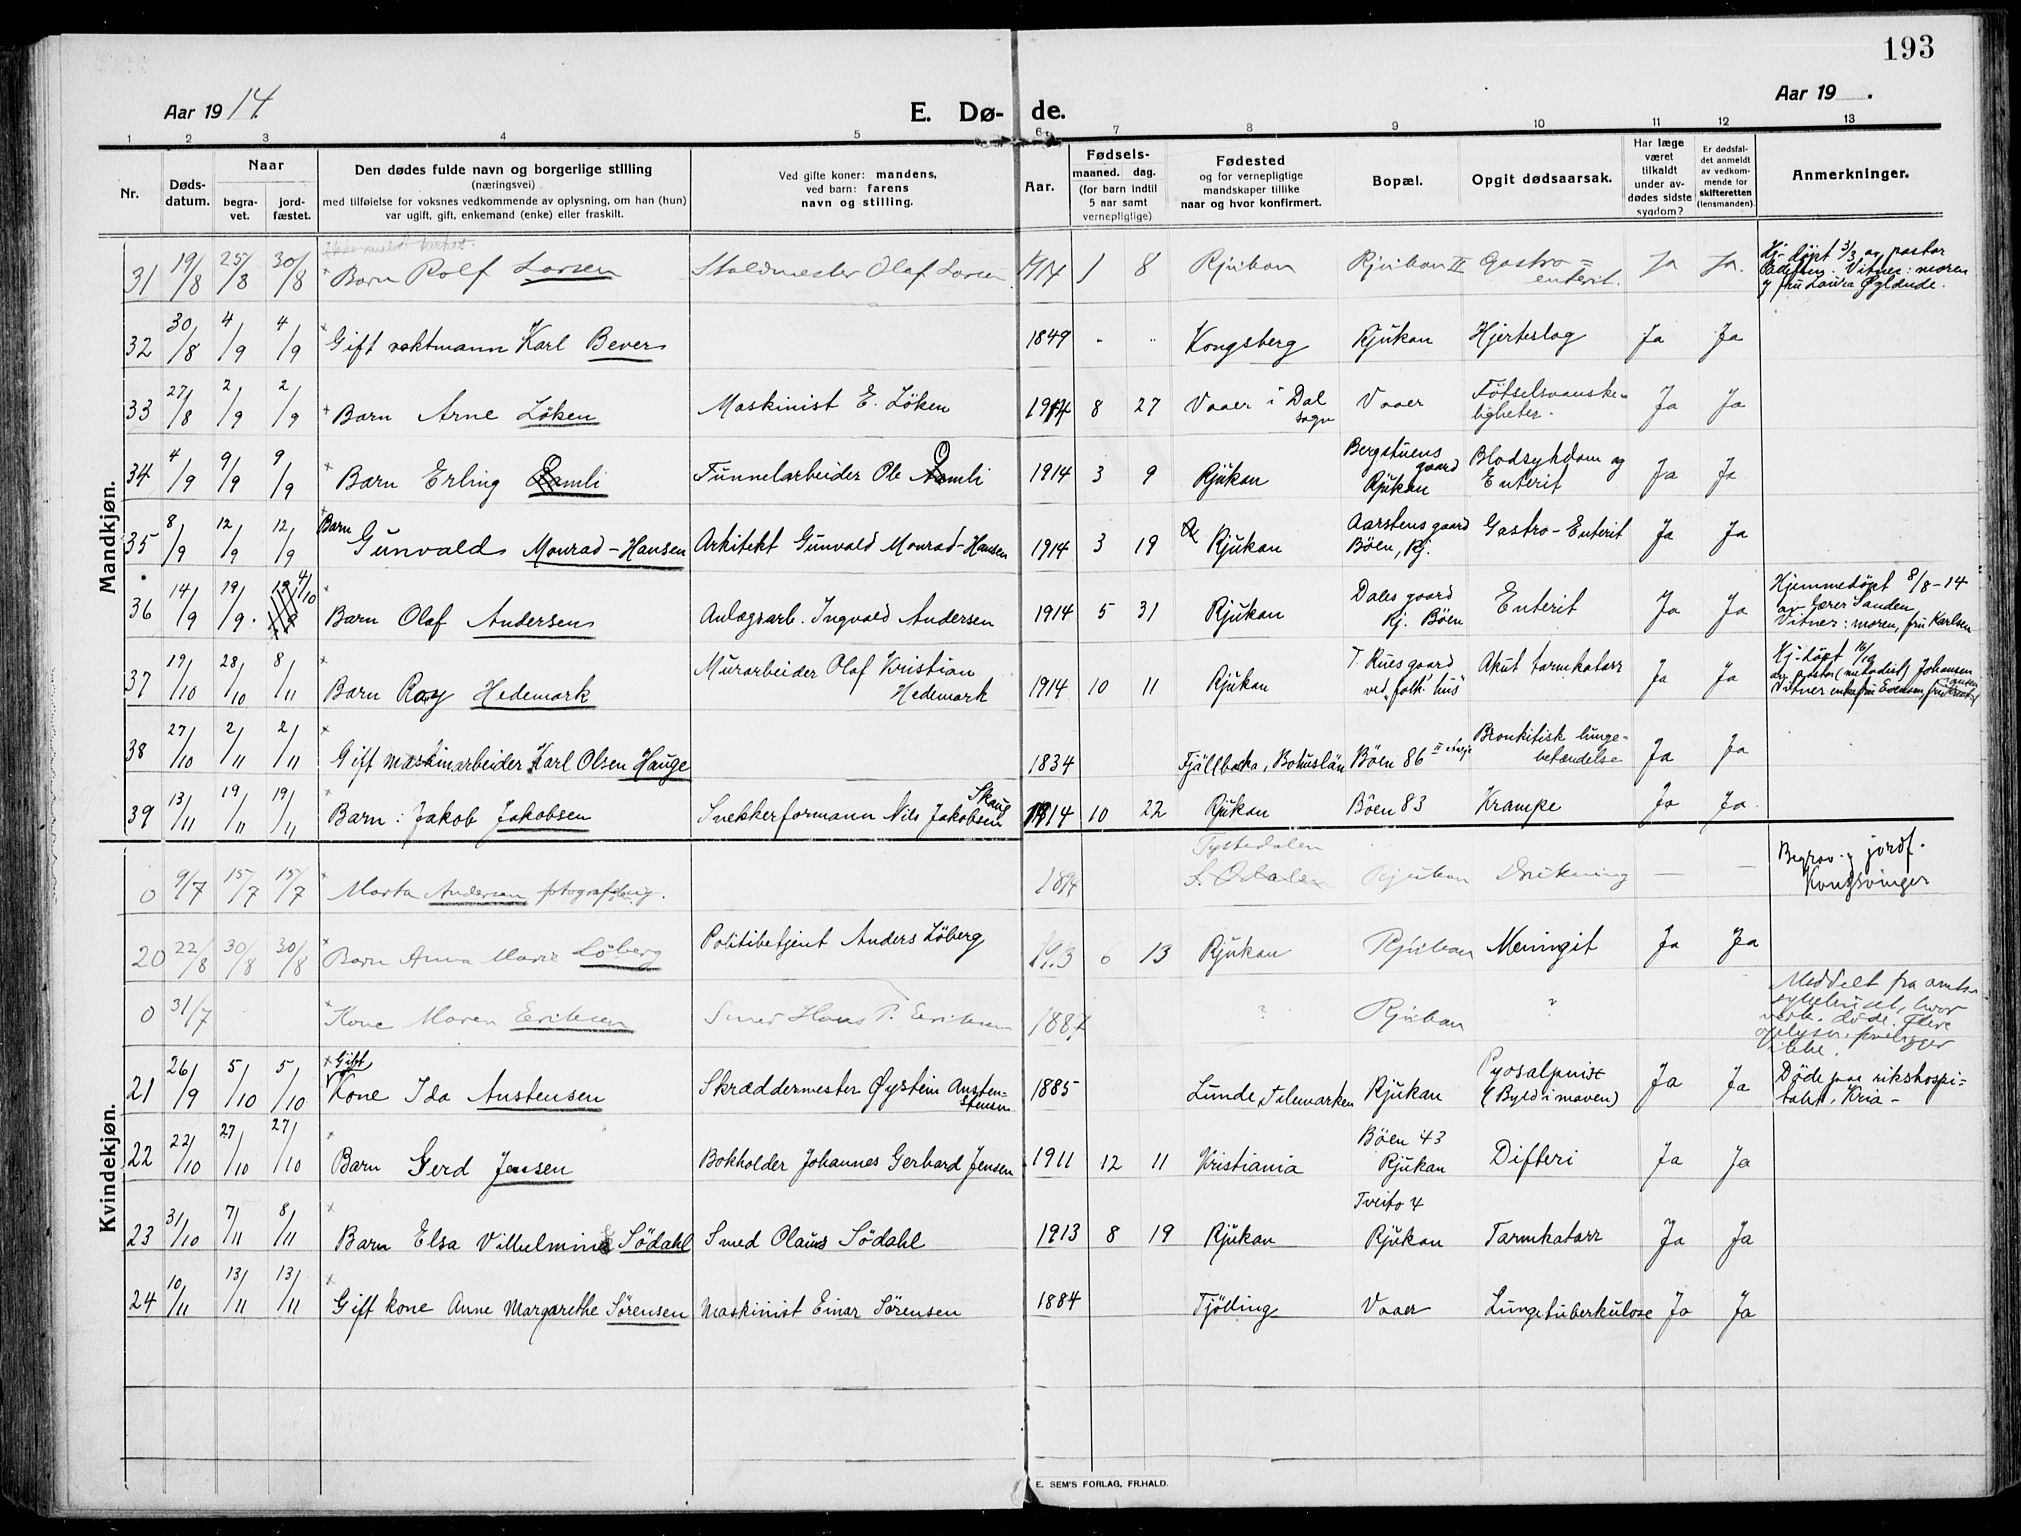 193
Aar 1914.
E. Dø- de.
Aar 19 .
1 2 3 4 5 6 7 8 9 10 11 12 13
Nr.
Døds-
datum.
Naar
begra-
vet.
jord-
fæstet.
Den dødes fulde navn og borgerlige stilling
(næringsvei)
med tilføielse for voksnes vedkommende av oplysning, om han (hun)
var ugift, gift, enkemand (enke) eller fraskilt.
Ved gifte koner: mandens,
ved barn: farens
navn og stilling.
Aar.
Fødsels-
maaned. dag.
(for barn indtil
5 aar samt
vernepligtige)
Fødested
og for vernepligtige
mandskaper tillike
naar og hvor konfirmert.
Bopæl.
Opgit dødsaarsak.
Har læge
været
tilkaldt
under av-
dødes sidste
sygdom?
Er dødsfal-
det anmeldt
av vedkom-
mende for
skifteretten
(lensmanden).
Anmerkninger.
Mandkjøn.
31 19/8 25/8 30/8 Barn Rolf Larsen Staldmester Olaf Larsen 1914 1 8 Rjukan Rjukan II Gastro=
enterit. Ja Ja. Hj-døpt 3/3 av pastor
Vitner: moren
32 30/8 4/9 4/9 Gift vaktmann Karl Bever 1849 " " Kongsberg Rjukan Hjerteslag Ja Ja
33 27/8 2/9 2/9 Barn Arne Löken Maskinist E. Löken 1914 8 27 Vaaer i Dal
sogn Vaaer Fötselsvanske-
ligheter. Ja Ja
34 4/9 9/9 9/9 Barn Erling Omli Tunnelarbeider Ole Omli 1914 3 9 Rjukan Bergstuens
gaard
Rjukan Blodsykdom og
Enterit Ja Ja
35 8/9 12/9 12/9 Barn
Gunvald Monrad-Hansen Arkitekt Gunvald Monrad-Hansen 1914 3 19 Rjukan Aarstens gaard
Böen, Rj. Gastro-Enterit Ja Ja
36 14/9 19/9. 4/10 Barn Olaf Andersen Anlægsarb. Ingvald Andersen 1914 5 31 Rjukan Dales gaard
Rj. Böen Enterit Ja Ja Hjemmedöpt 8/8-14
av lærer Sanden
Vitner: moren, fru Karlsen
37 19/10 28/10 8/11 Barn Roy Hedemark Murarbeider Olaf Kristian
Hedemark 1914 10 11 Rjukan T. Rues gaard
ved "folk. hus" Akut tarmkatarr Ja Ja Hj-döpt 16/10
av pastor (metodist) Johansen
Vitner enkefru Evensen,
38 27/10 2/11 2/11 Gift maskinarbeider Karl Olsen Hauge 1834 Fjällbacka, Bohuslän Böen 86 II etage Bronkitisk lunge-
betændelse Ja Ja
39 13/11 19/11 19/11 Barn: Jakob Jakobsen Snekkerformann Nils Jakobsen Skaug 1914 10 22 Rjukan Böen 83 Krampe Ja Ja
Kvindekjøn.
0 9/7 15/7 15/7 Marta Andersen 1894 Tystedalen
S. Odalen Rjukan Drukning — — Begrav. og jordf.
Kongsvinger
20 22/8 30/8 30/8 Barn Anna Marie Löberg Politibetjent Anders Löberg 1913 6 13 Rjukan Rjukan Meningit Ja Ja
0 31/7 Kone Maren Eriksen Smed Hans P. Eriksen 1887 ? Rjukan ? Meddelt fra amts-
sykehuset, hvor
vedk. døde. Flere
oplysn. foreligger
ikke.
21 26/9 5/10 5/10 Gift
Kone Ida Austensen Skræddermester Øystein Austen-
stensen 1885 Lunde, Telemarken Rjukan Pyosalpinit
(Byld i maven) Ja Ja Döde paa rikshospi-
talet, Kria-
22 22/10 27/10 27/10 Barn Gerd Jensen Bokholder Johannes Gerhard Jensen 1911 12 11 Kristiania Böen 43
Rjukan Difteri Ja Ja
23 31/10 7/11 8/11 Barn Elsa Vilhelmine Södahl Smed Olaus Södahl 1913 8 19 Rjukan Tveito 4
Rjukan Tarmkatarr Ja Ja
24 10/11 13/11 13/11 Gift kone Anne Margarethe Sørensen Maskinist Einar Sørensen 1884 Tjölling Vaaer Lungetuberkulose Ja Ja
E. SEM'S FORLAG, FR.HALD.